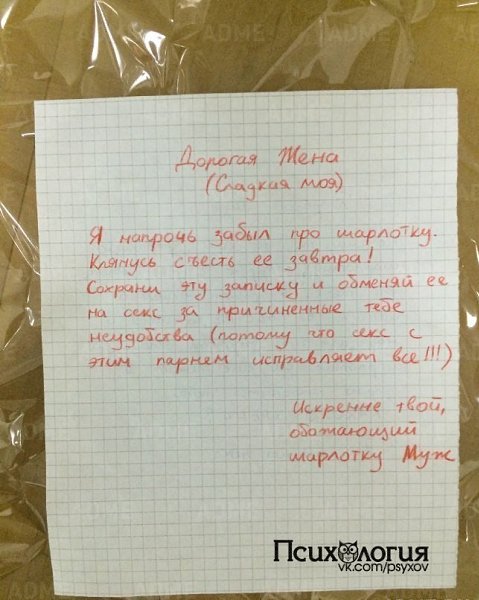 ADME
ADME
Дорогая Жена
(Сладкая моя)
Я напрочь забыл про шарлотку.
Клянусь съесть ее завтра!
Сохрани эту записку и обменяй ее
на секс за причиненные тебе
неудобства (потому что секс с
этим парнем исправляет все!!!)
Искренне твой,
обожающий
шарлотку Муж
Психология
vk.com/psyxov